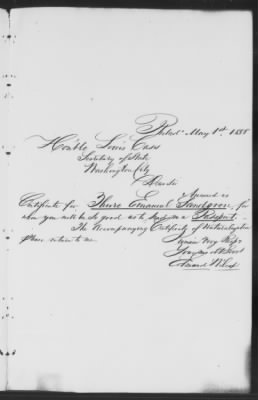 Philad. May 1st. 1858
Honble Lewis Cass
Secretary of State
Washington City
Dear Sir
Annexed is
Certificate for Thure Emanuel Sandgren, for
whom you will be so good as to issue a Passport.
The Accompanying Certificate of Naturalization
please return to me.
Yours Very Resp